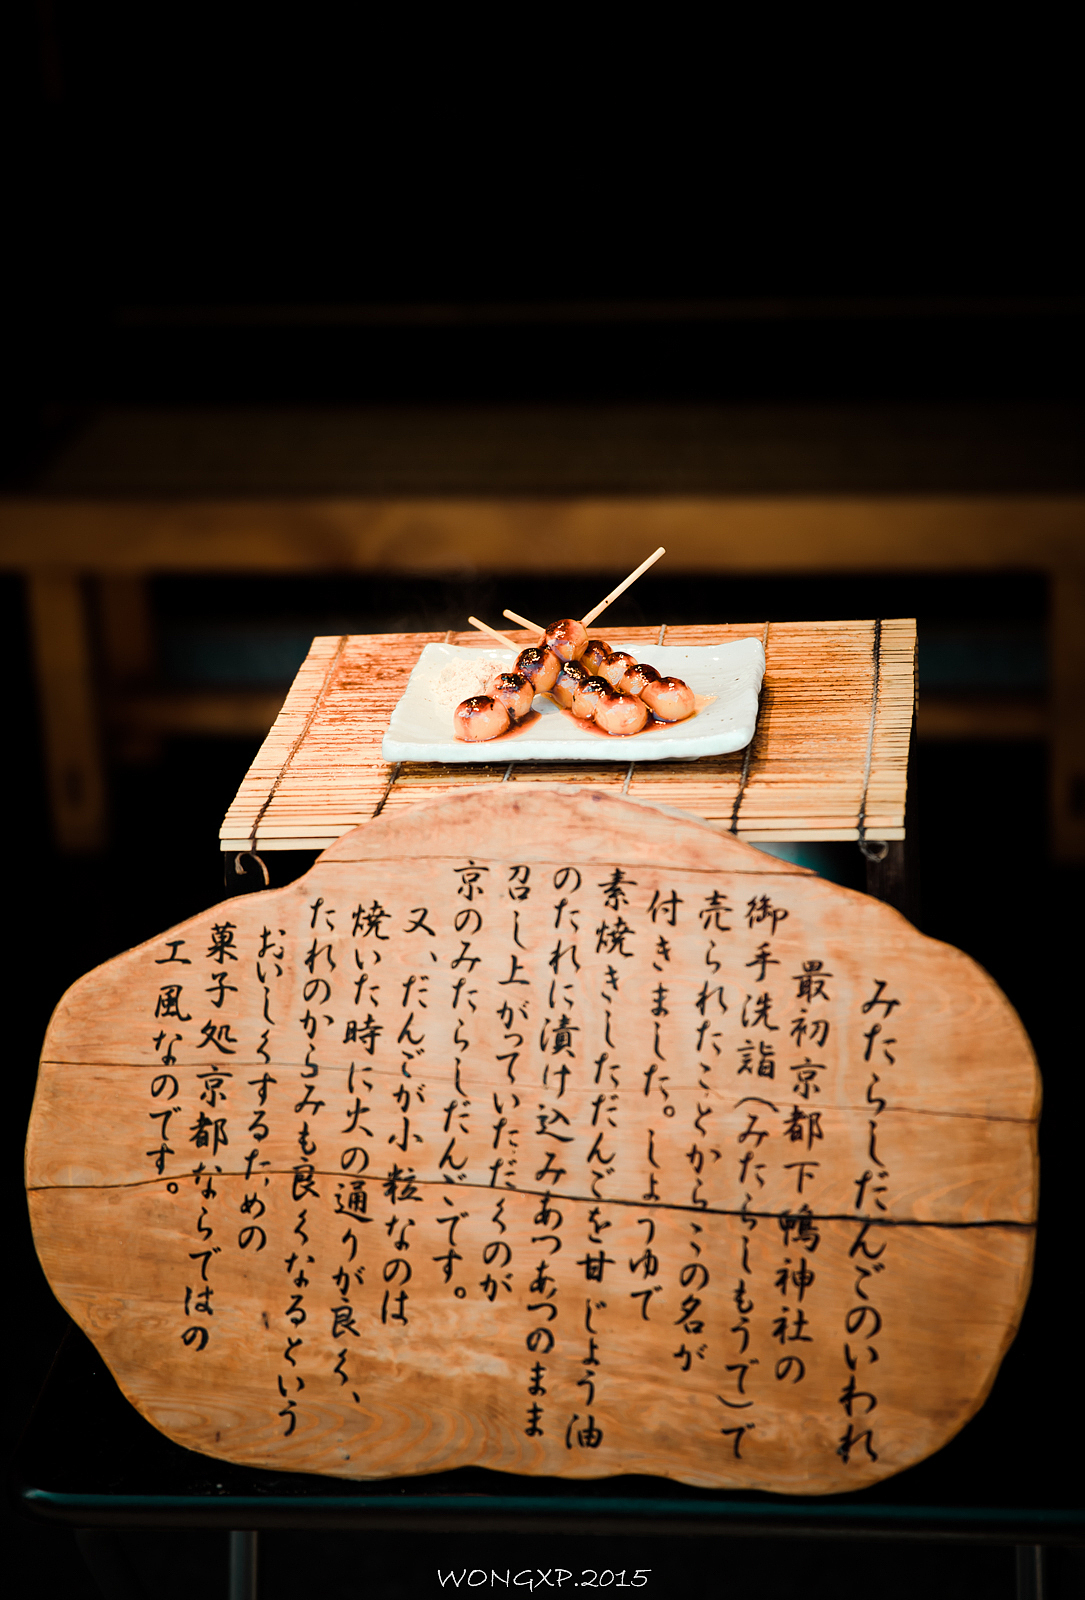 みたらしだんごのいわれ
最初京都下鴨神社の
御手洗詣（みたらしもうで）で
売られたことからこの名が
付きました。しょうゆで
素焼きしただんごを甘じょう油
のたれに漬け込みあつあつのまま
召し上がっていただくのが
京のみたらしだんごです。
又、だんごが小粒なのは
焼いた時に火の通りが良く、
たれのからみも良くなるという
おいしくするための
菓子処京都ならではの
工風なのです。
WONGXP.2015